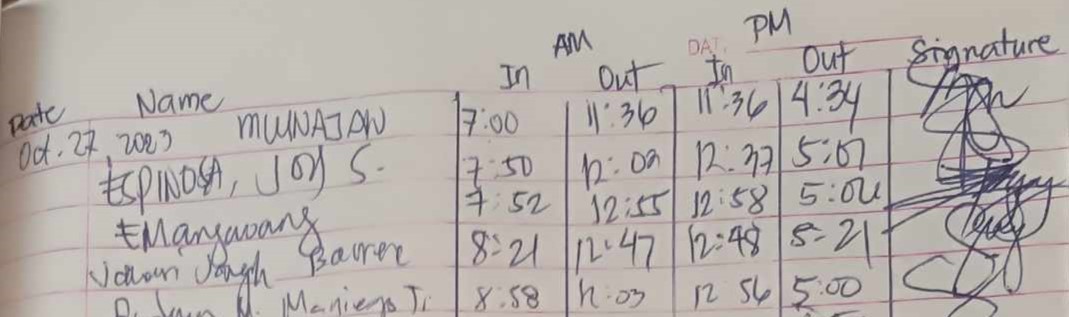 AM PM
DAT.
Date Name In Out In Out Signature
Oct. 27, 2023 MWNAJAW 7:00 11:36 11:36 4:34
ESPINOSA, JOY S. 7:50 12:09 12:37 5:07
7:52 12:55 12:58 5:04
8:21 12:47 12:48 5:21
M. Maniego Jr. 8:58 12:03 12 56 5:00